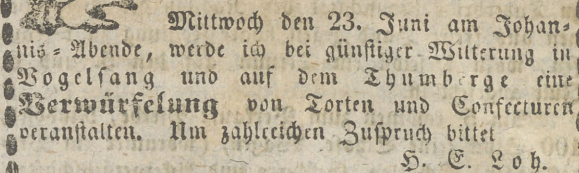 Mittwoch den 23. Juni am Johan-
nis-Abende, werde ich bei günstiger Witterung in
Vogelsang und auf dem Thumberge eine
Verwürfelung von Torten und Confecturen
veranstalten. Um zahlreichen Zuspruch bittet
H. E. Loh.